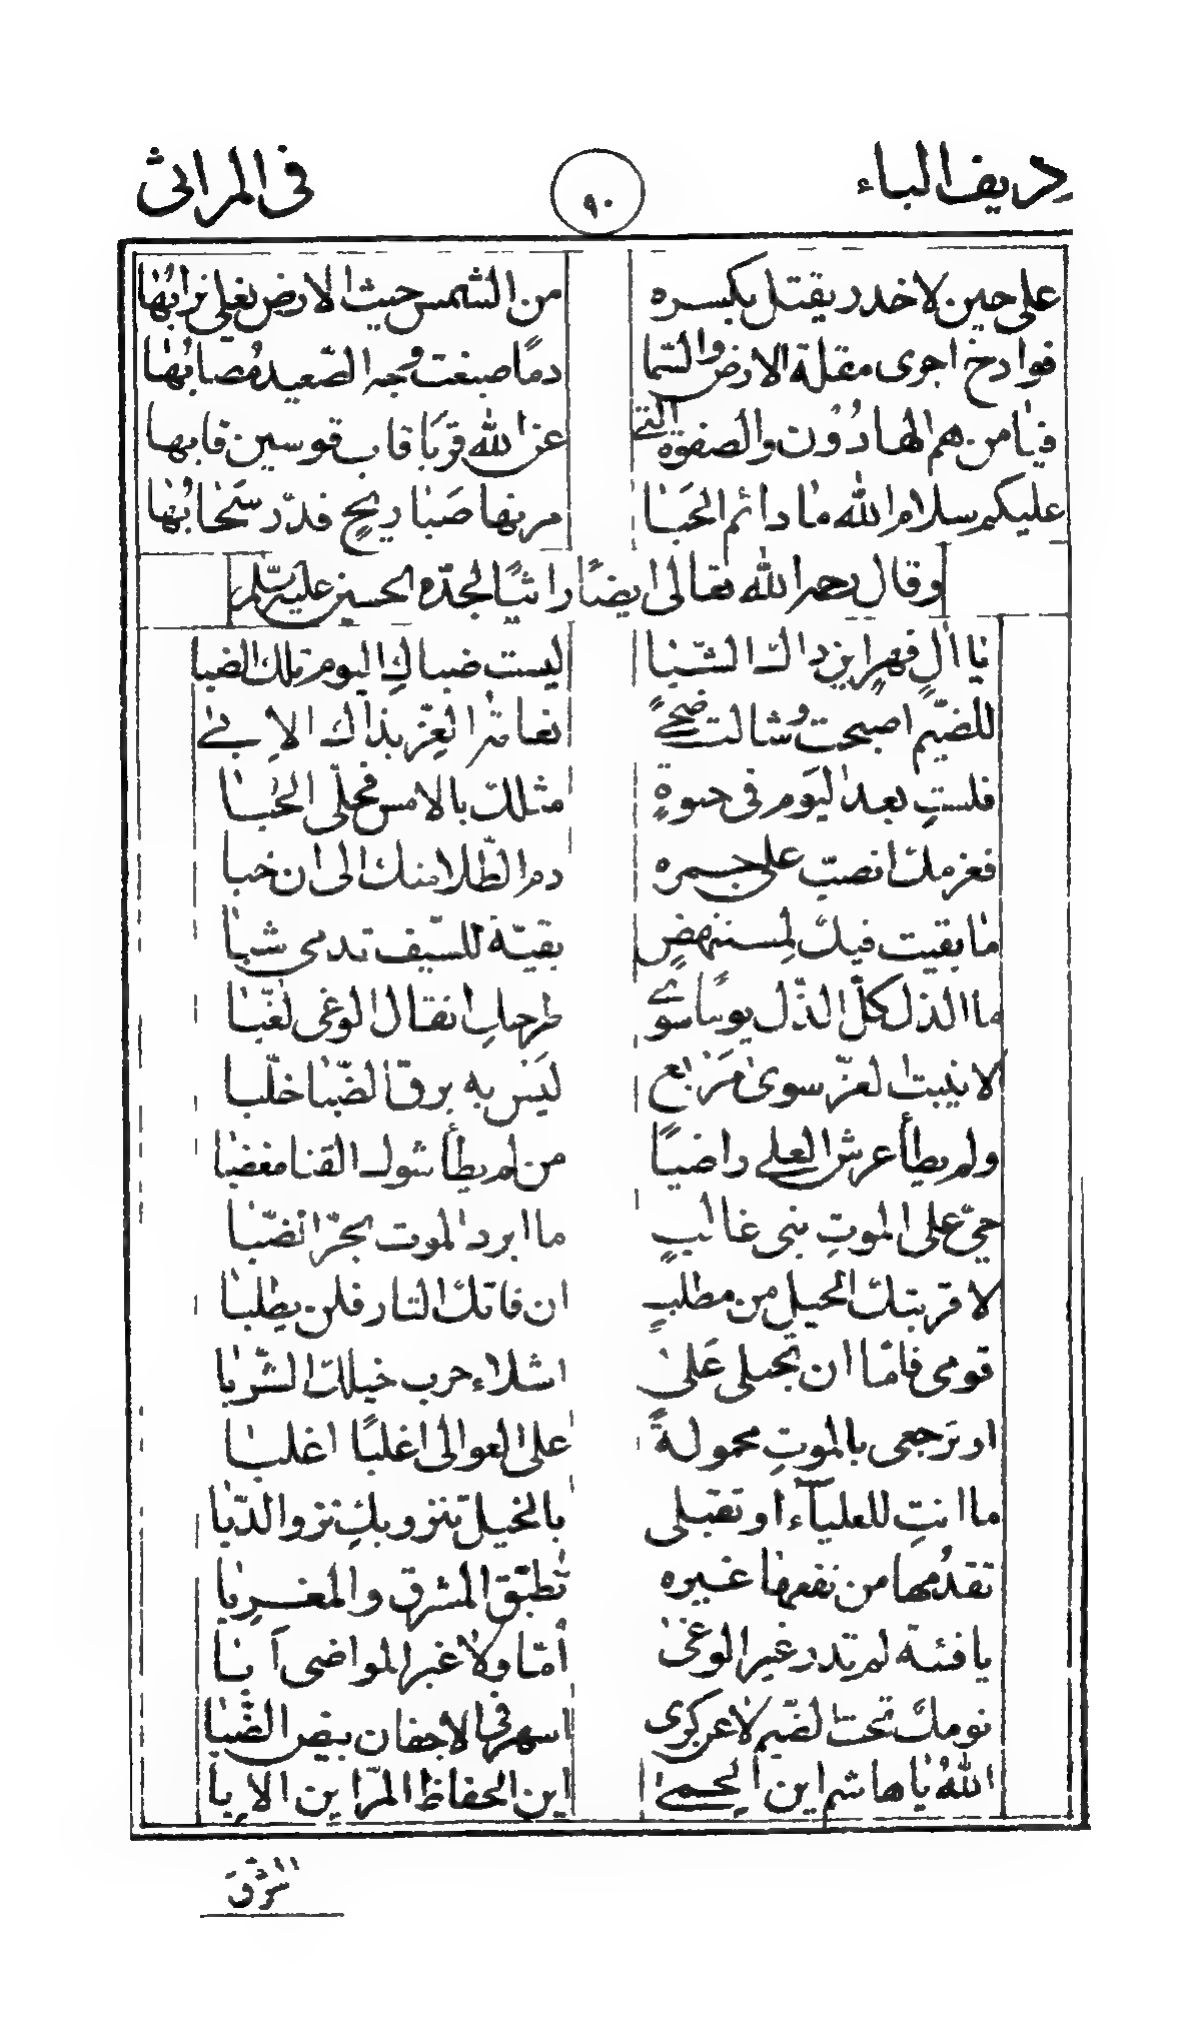 رديف الباء ٩٠ فى المراثى
على حين لاخدر يقتل بكسره من الشمس حيث الارض يغلى ترابُها
فوادخ اجرى مقلة الارض والسّما دمًا صبغت وجه الصّعيد مُصابُها
فيا من هم الهادُون والصفوة التى عن الله قربًا قاب قوسين قابها
عليكم سلام الله ما دائم الحَبا مرتها صَبا ريحٍ فدرّ سَحابُها
وقال رحمه الله تعالى ايضًا راثيًا لجدّه الحسين عليه السّلم
يا آلِ فهرٍ اين ذاك الشّبا ليست ضباكِ اليوم تلك الضبا
للضّيم اصبحت وشالت ضحىً نعامة العِزّ بذاك الاِبى
فلستِ بعد اليَوم فى حبوةٍ مثلك بالامس فحُلّى الحُبا
فعزمك انصبّ على جمره دم الطّلا منك الى ان خبا
ما بقيت فيكِ لمستنهضٍ بقيّة للسّيف تدمى شبا
ما الذلّ كلّ الذّل يومًا سوى طرحكِ اثقال الوغى لغّبا
لا ينبت العزّ سوى مَرْبع ليَس به برق الضّبا خلّبا
ولم يطأ عرش العلى راضيًا من لم يطأ شوك القنا مغضبا
حىّ على الموتِ بنى غالبٍ ما ابرد الموت بحرّ الضّبا
لا قربتك الخيل من مطلبٍ ان فاتك الثار فلن يطلبا
قومى فامّا ان تجيلى عَلى اشلاء حرب خيلك الشّزّبا
او ترجعى بالموتِ محمولةً على العوالى اغلبًا اغلبا
ما انتِ للعلياء او تقبلى بالخيل تنزو بكِ نزو الدّبا
تقدمُها من نقعها غيره تُطبّق المشرق والمغربا
يا فئة لم تدر غير الوغى اُمّا ولا غير المواضى اَبا
نومك تحت الضّيم لا عن كرى اسهر فى الاجفان بيض الضّبا
اللهُ يا هاشم اين الحمى اين الحفاظ المرّ اين الاِبا